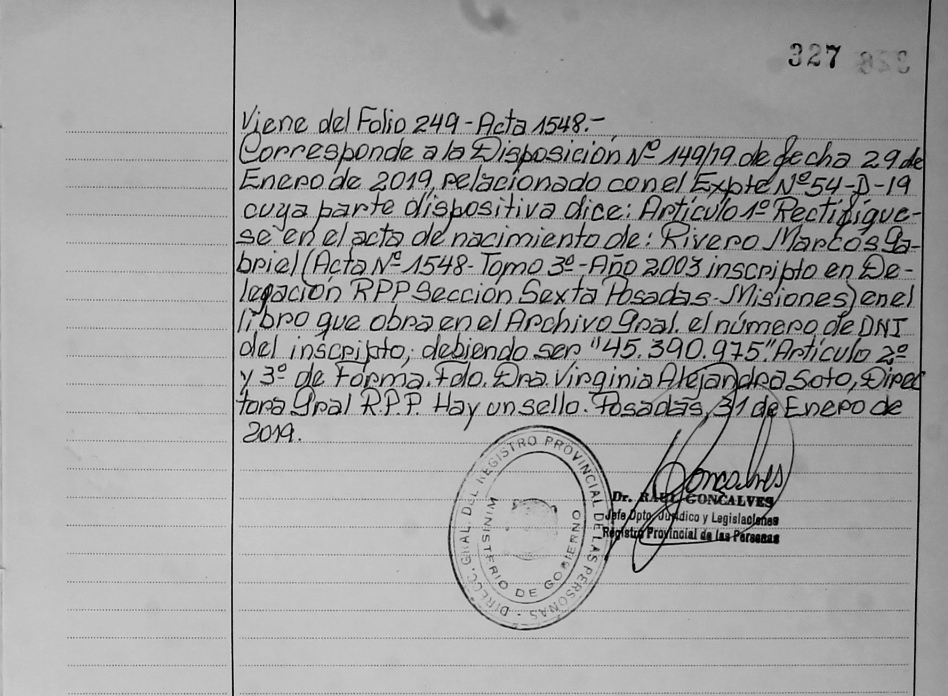 327 328
Viene del Folio 249-Acta 1548.-
Corresponde a la Disposición Nº 149/19 de fecha 29 de
Enero de 2019, relacionado con el Expte Nº 54-D-19
cuya parte dispositiva dice: Artículo 1º Rectifíque-
se en el acta de nacimiento de: Rivero Marcos Ga-
briel (Acta Nº 1548- Tomo 3º-Año 2003 inscripto en De-
legación RPP Sección Sexta Posadas-Misiones) en el
libro que obra en el Archivo Gral. el número de DNI
del inscripto, debiendo ser "45.390.975". Artículo 2º
y 3º de Forma. Fdo. Dra. Virginia Alejandra Soto, Direc
tora Gral R.P.P. Hay un sello. Posadas, 31 de Enero de
2019.
DIRECC. GRAL. DEL REGISTRO PROVINCIAL DE LAS PERSONAS -
MINISTERIO DE GOBIERNO
Goncalves
Dr. RAUL GONCALVES
Jefe Dpto. Jurídico y Legislaciones
Registro Provincial de las Personas